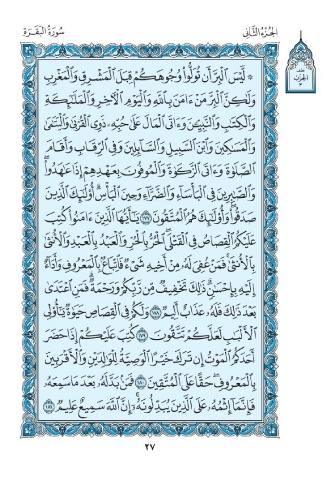 الجزء الثاني
سورة البقرة
۞ لَّيْسَ ٱلْبِرَّ أَن تُوَلُّوا۟ وُجُوهَكُمْ قِبَلَ ٱلْمَشْرِقِ وَٱلْمَغْرِبِ
وَلَٰكِنَّ ٱلْبِرَّ مَنْ ءَامَنَ بِٱللَّهِ وَٱلْيَوْمِ ٱلْءَاخِرِ وَٱلْمَلَٰٓئِكَةِ
وَٱلْكِتَٰبِ وَٱلنَّبِيِّۦنَ وَءَاتَى ٱلْمَالَ عَلَىٰ حُبِّهِۦ ذَوِى ٱلْقُرْبَىٰ وَٱلْيَتَٰمَىٰ
وَٱلْمَسَٰكِينَ وَٱبْنَ ٱلسَّبِيلِ وَٱلسَّآئِلِينَ وَفِى ٱلرِّقَابِ وَأَقَامَ
ٱلصَّلَوٰةَ وَءَاتَى ٱلزَّكَوٰةَ وَٱلْمُوفُونَ بِعَهْدِهِمْ إِذَا عَٰهَدُوا۟ ۖ
وَٱلصَّٰبِرِينَ فِى ٱلْبَأْسَآءِ وَٱلضَّرَّآءِ وَحِينَ ٱلْبَأْسِ ۗ أُو۟لَٰٓئِكَ ٱلَّذِينَ
صَدَقُوا۟ ۖ وَأُو۟لَٰٓئِكَ هُمُ ٱلْمُتَّقُونَ ١٧٧ يَٰٓأَيُّهَا ٱلَّذِينَ ءَامَنُوا۟ كُتِبَ
عَلَيْكُمُ ٱلْقِصَاصُ فِى ٱلْقَتْلَى ۖ ٱلْحُرُّ بِٱلْحُرِّ وَٱلْعَبْدُ بِٱلْعَبْدِ وَٱلْأُنثَىٰ
بِٱلْأُنثَىٰ ۚ فَمَنْ عُفِىَ لَهُۥ مِنْ أَخِيهِ شَىْءٌ فَٱتِّبَاعٌۢ بِٱلْمَعْرُوفِ وَأَدَآءٌ
إِلَيْهِ بِإِحْسَٰنٍ ۗ ذَٰلِكَ تَخْفِيفٌ مِّن رَّبِّكُمْ وَرَحْمَةٌ ۗ فَمَنِ ٱعْتَدَىٰ
بَعْدَ ذَٰلِكَ فَلَهُۥ عَذَابٌ أَلِيمٌ ١٧٨ وَلَكُمْ فِى ٱلْقِصَاصِ حَيَوٰةٌ يَٰٓأُو۟لِى
ٱلْأَلْبَٰبِ لَعَلَّكُمْ تَتَّقُونَ ١٧٩ كُتِبَ عَلَيْكُمْ إِذَا حَضَرَ
أَحَدَكُمُ ٱلْمَوْتُ إِن تَرَكَ خَيْرًا ٱلْوَصِيَّةُ لِلْوَٰلِدَيْنِ وَٱلْأَقْرَبِينَ
بِٱلْمَعْرُوفِ ۖ حَقًّا عَلَى ٱلْمُتَّقِينَ ١٨٠ فَمَنۢ بَدَّلَهُۥ بَعْدَ مَا سَمِعَهُۥ
فَإِنَّمَآ إِثْمُهُۥ عَلَى ٱلَّذِينَ يُبَدِّلُونَهُۥٓ ۚ إِنَّ ٱللَّهَ سَمِيعٌ عَلِيمٌ ١٨١
٢٧